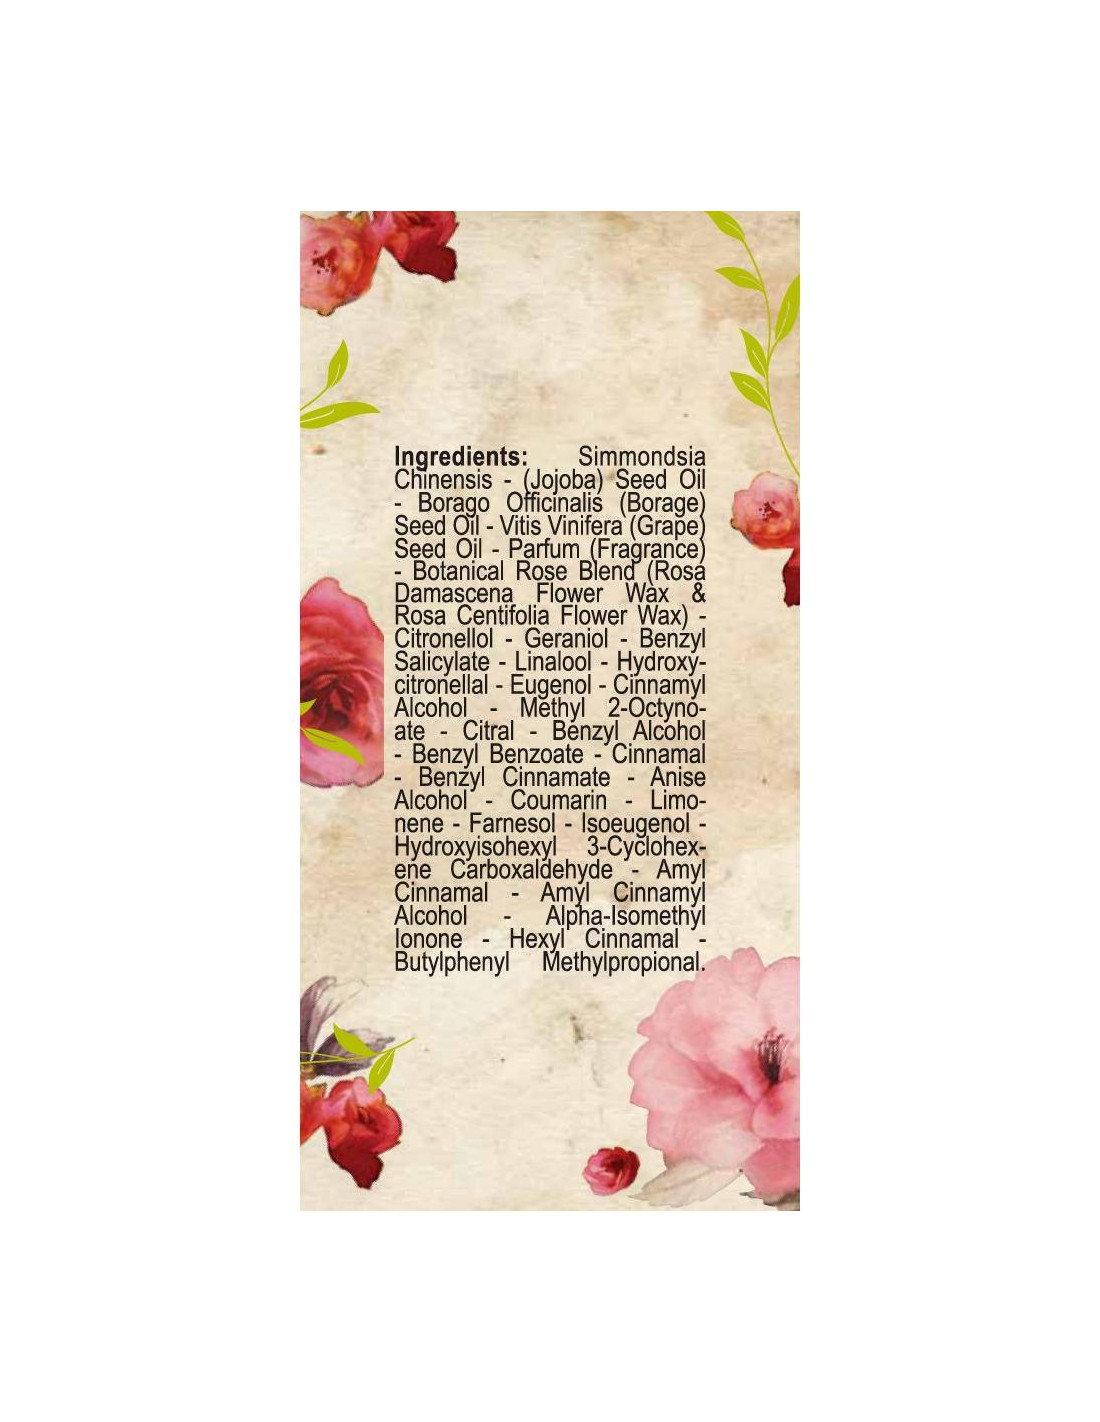 Ingredients: Simmondsia
Chinensis - (Jojoba) Seed Oil
- Borago Officinalis (Borage)
Seed Oil - Vitis Vinifera (Grape)
Seed Oil - Parfum (Fragrance)
- Botanical Rose Blend (Rosa
Damascena Flower Wax &
Rosa Centifolia Flower Wax) -
Citronellol - Geraniol - Benzyl
Salicylate - Linalool - Hydroxy-
citronellal - Eugenol - Cinnamyl
Alcohol - Methyl 2-Octyno-
ate - Citral - Benzyl Alcohol
- Benzyl Benzoate - Cinnamal
- Benzyl Cinnamate - Anise
Alcohol - Coumarin - Limo-
nene - Farnesol - Isoeugenol -
Hydroxyisohexyl 3-Cyclohex-
ene Carboxaldehyde - Amyl
Cinnamal - Amyl Cinnamyl
Alcohol - Alpha-Isomethyl
Ionone - Hexyl Cinnamal -
Butylphenyl Methylpropional.